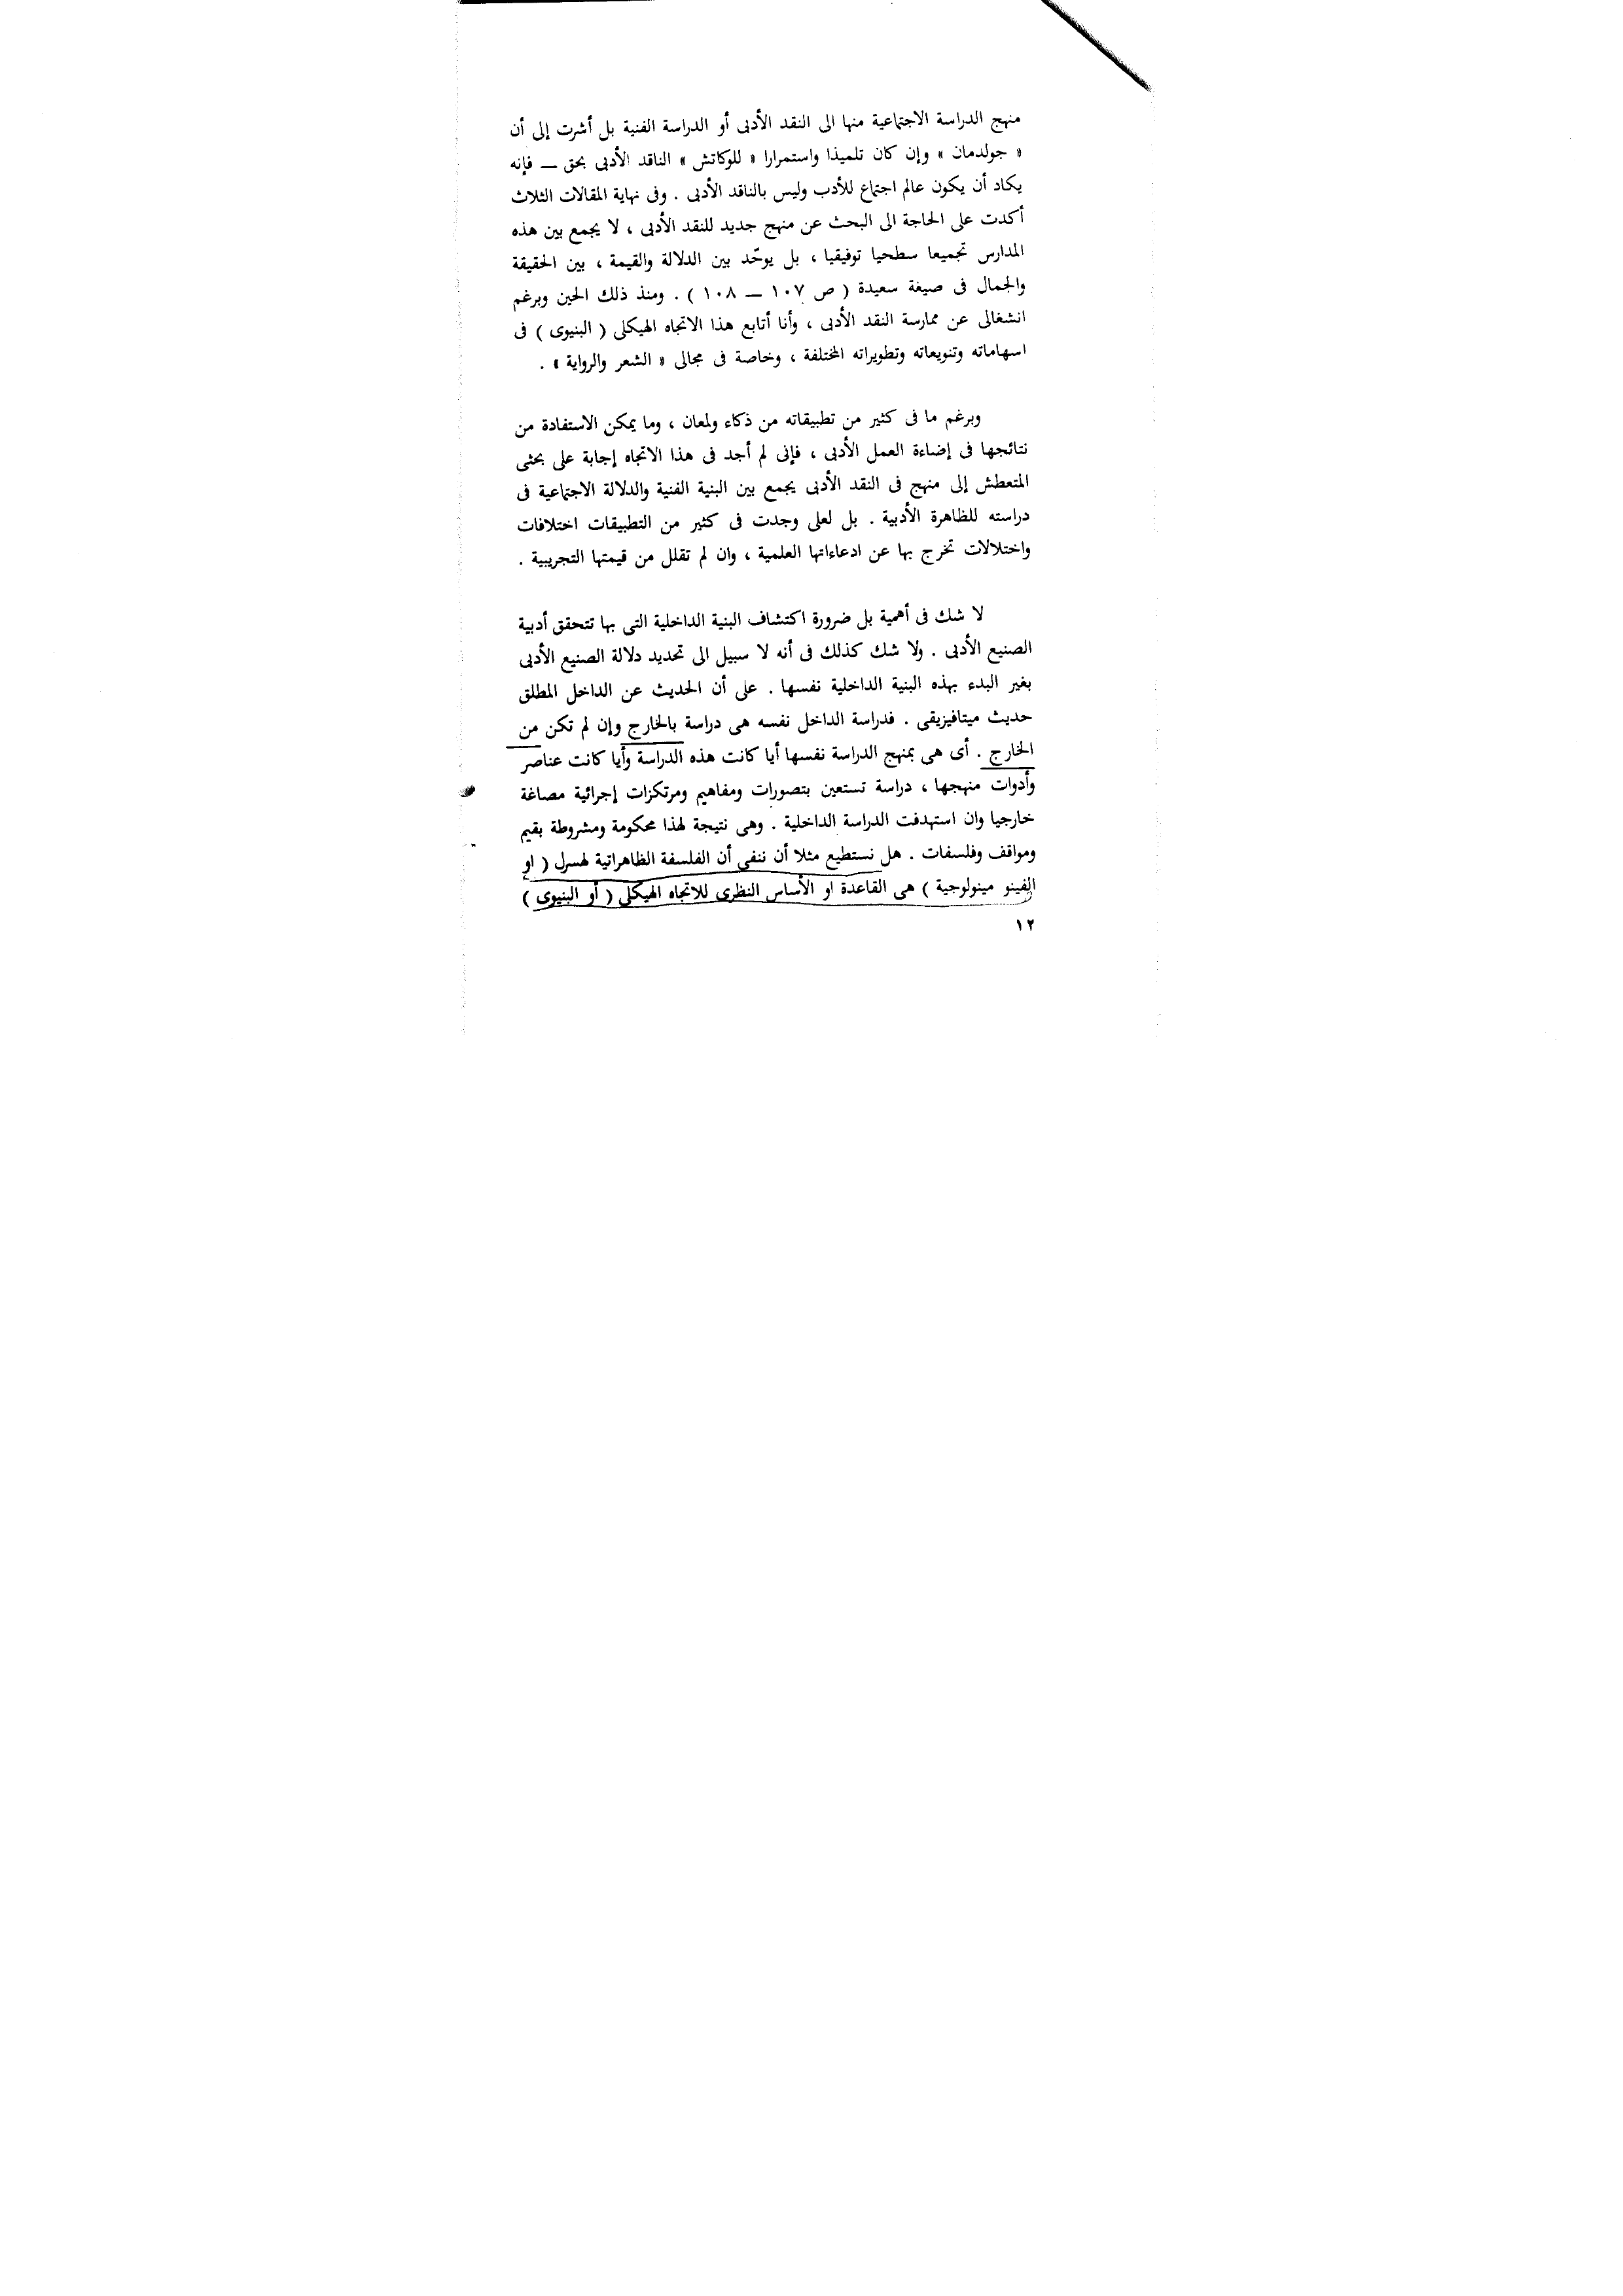 منهج الدراسة الاجتماعية منها الى النقد الأدبى أو الدراسة الفنية بل أشرت إلى أن
« جولدمان » وإن كان تلميذا واستمرارا « للوكاتش » الناقد الأدبى بحق — فإنه
يكاد أن يكون عالم اجتماع للأدب وليس بالناقد الأدبى . وفى نهاية المقالات الثلاث
أكدت على الحاجة الى البحث عن منهج جديد للنقد الأدبى ، لا يجمع بين هذه
المدارس تجميعا سطحيا توفيقيا ، بل يوحّد بين الدلالة والقيمة ، بين الحقيقة
والجمال فى صيغة سعيدة ( ص ١٠٧ — ١٠٨ ) . ومنذ ذلك الحين وبرغم
انشغالى عن ممارسة النقد الأدبى ، وأنا أتابع هذا الاتجاه الهيكلى ( البنيوى ) فى
اسهاماته وتنويعاته وتطويراته المختلفة ، وخاصة فى مجالى « الشعر والرواية » .
وبرغم ما فى كثير من تطبيقاته من ذكاء ولمعان ، وما يمكن الاستفادة من
نتائجها فى إضاءة العمل الأدبى ، فإنى لم أجد فى هذا الاتجاه إجابة على بحثى
المتعطش إلى منهج فى النقد الأدبى يجمع بين البنية الفنية والدلالة الاجتماعية فى
دراسته للظاهرة الأدبية . بل لعلى وجدت فى كثير من التطبيقات اختلافات
واختلالات تخرج بها عن ادعاءاتها العلمية ، وان لم تقلل من قيمتها التجريبية .
لا شك فى أهمية بل ضرورة اكتشاف البنية الداخلية التى بها تتحقق أدبية
الصنيع الأدبى . ولا شك كذلك فى أنه لا سبيل الى تحديد دلالة الصنيع الأدبى
بغير البدء بهذه البنية الداخلية نفسها . على أن الحديث عن الداخل المطلق
حديث ميتافيزيقى . فدراسة الداخل نفسه هى دراسة بالخارج وإن لم تكن من
الخارج . أى هى بمنهج الدراسة نفسها أيا كانت هذه الدراسة وأيا كانت عناصر
وأدوات منهجها ، دراسة تستعين بتصورات ومفاهيم ومرتكزات إجرائية مصاغة
خارجيا وان استهدفت الدراسة الداخلية . وهى نتيجة لهذا محكومة ومشروطة بقيم
ومواقف وفلسفات . هل نستطيع مثلا أن ننفى أن الفلسفة الظاهراتية لهسرل ( او
الفينو مينولوجية ) هى القاعدة او الأساس النظرى للاتجاه الهيكلى ( أو البنيوى )
١٢